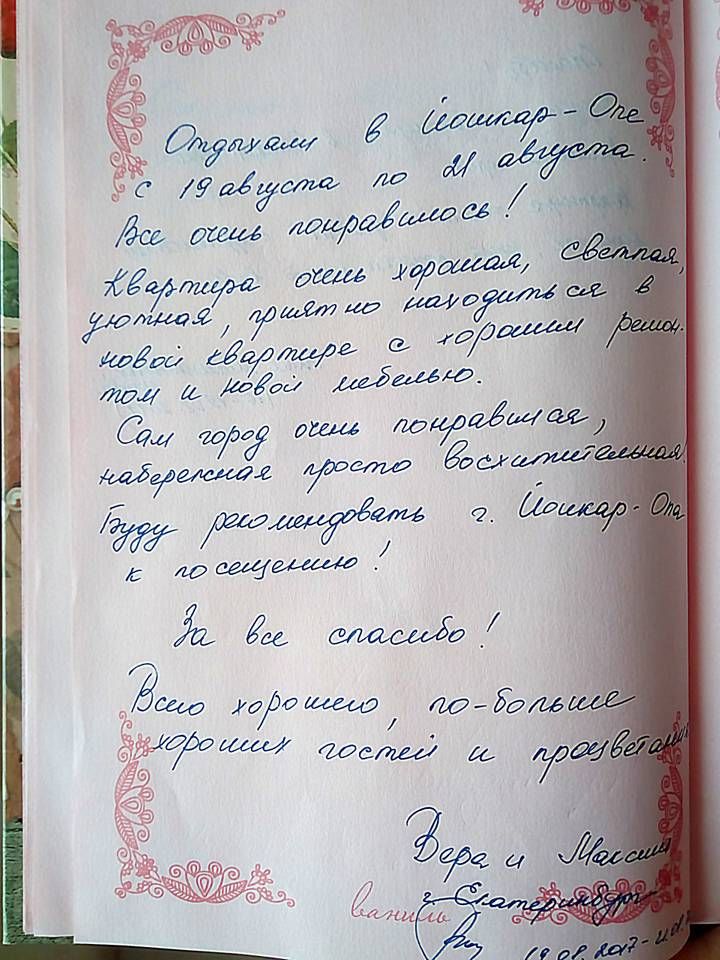 Отдыхали в Йошкар-Оле
с 19 августа по 21 августа.
Все очень понравилось!
Квартира очень хорошая, светлая,
уютная, приятно находиться в
новой квартире с хорошим ремон-
том и новой мебелью.
Сам город очень понравился,
набережная просто восхитительная!
Буду рекомендовать г. Йошкар-Ола
к посещению!
За все спасибо!
Всего хорошего, по-больше
хороших гостей и процветания
Вера и Максим
г. Екатеринбург
ваниль
19.08.2017-